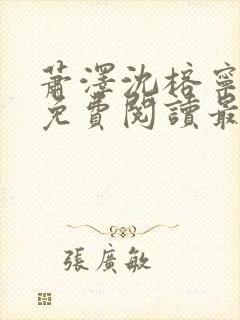 蕭澤沈榕寧
免費閱讀最
張廣敏